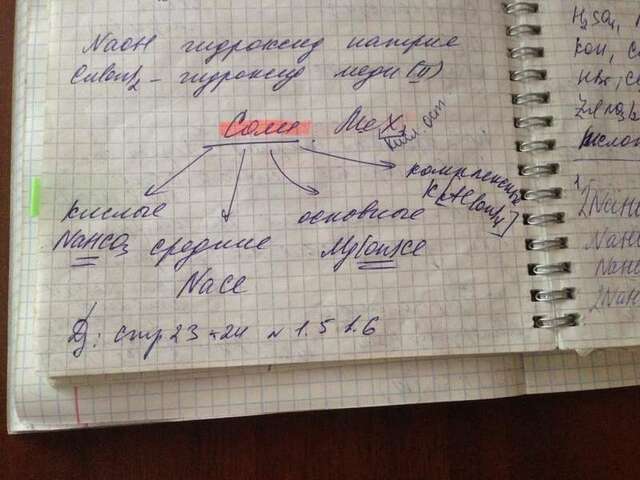 NaOH гидроксид натрия
Cu(OH)₂ – гидроксид меди (II)
Соли. MeX
кисл. ост
кислые
NaHCO₃
средние
NaCl
основные
Mg(OH)Cl
комплексные
K[Al(OH)₄]
Д/з: стр 23-24 № 1.5 1.6
H₂SO₄,
KOH,
HBr,
кислот
2NaH
NaH
NaH
2NaH